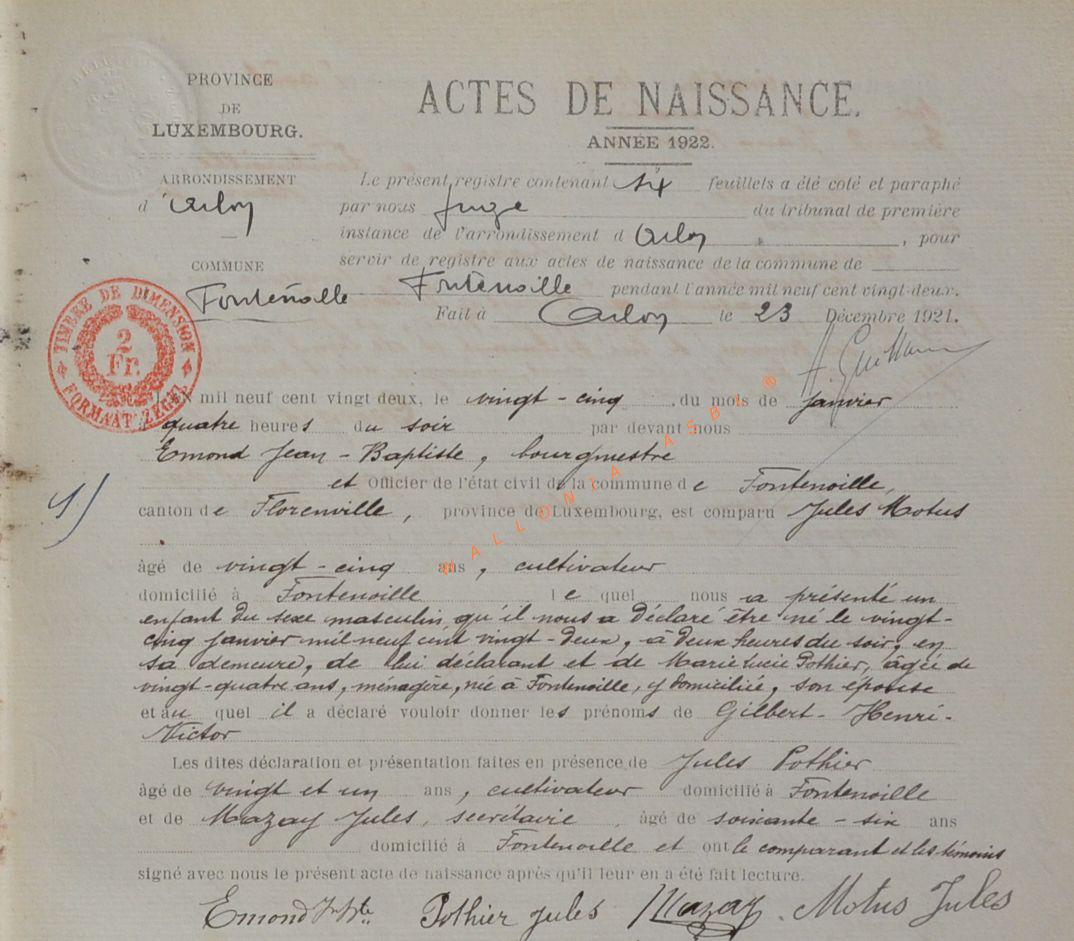 PROVINCE
DE
LUXEMBOURG.
ACTES DE NAISSANCE.
ANNÉE 1922.
ARRONDISSEMENT
d'Arlon
COMMUNE
Fontenoille
Le présent registre contenant six feuillets a été coté et paraphé
par nous Juge du tribunal de première
instance de l'arrondissement d'Arlon, pour
servir de registre aux actes de naissance de la commune de
Fontenoille pendant l'année mil neuf cent vingt-deux.
Fait à Arlon le 23 Décembre 1921.
TIMBRE DE DIMENSION
2
Fr.
FORMAAT ZEGEL
L'AN mil neuf cent vingt deux, le vingt-cinq du mois de janvier
à quatre heures du soir par devant nous
Emond Jean-Baptiste, bourgmestre
et Officier de l'état civil de la commune de Fontenoille,
1)
canton de Florenville, province de Luxembourg, est comparu Jules Motus
âgé de vingt-cinq ans, cultivateur
domicilié à Fontenoille lequel nous a présenté un
enfant du sexe masculin qu'il nous a déclaré être né le vingt-
cinq janvier mil neuf cent vingt-deux, à deux heures du soir, en
sa demeure, de lui déclarant et de Marie Lucie Pothier, âgée de
vingt-quatre ans, ménagère, née à Fontenoille, y domiciliée, son épouse
et au quel il a déclaré vouloir donner les prénoms de Gilbert-Henri-
Victor
Les dites déclaration et présentation faites en présence de Jules Pothier
âgé de vingt et un ans, cultivateur domicilié à Fontenoille
et de Mazay Jules, secrétaire, âgé de soixante-six ans
domicilié à Fontenoille et ont le comparant et les témoins
signé avec nous le présent acte de naissance après qu'il leur en a été fait lecture.
Emond J. Bte Pothier Jules Mazay. Motus Jules
WALLONIA ASBL ®